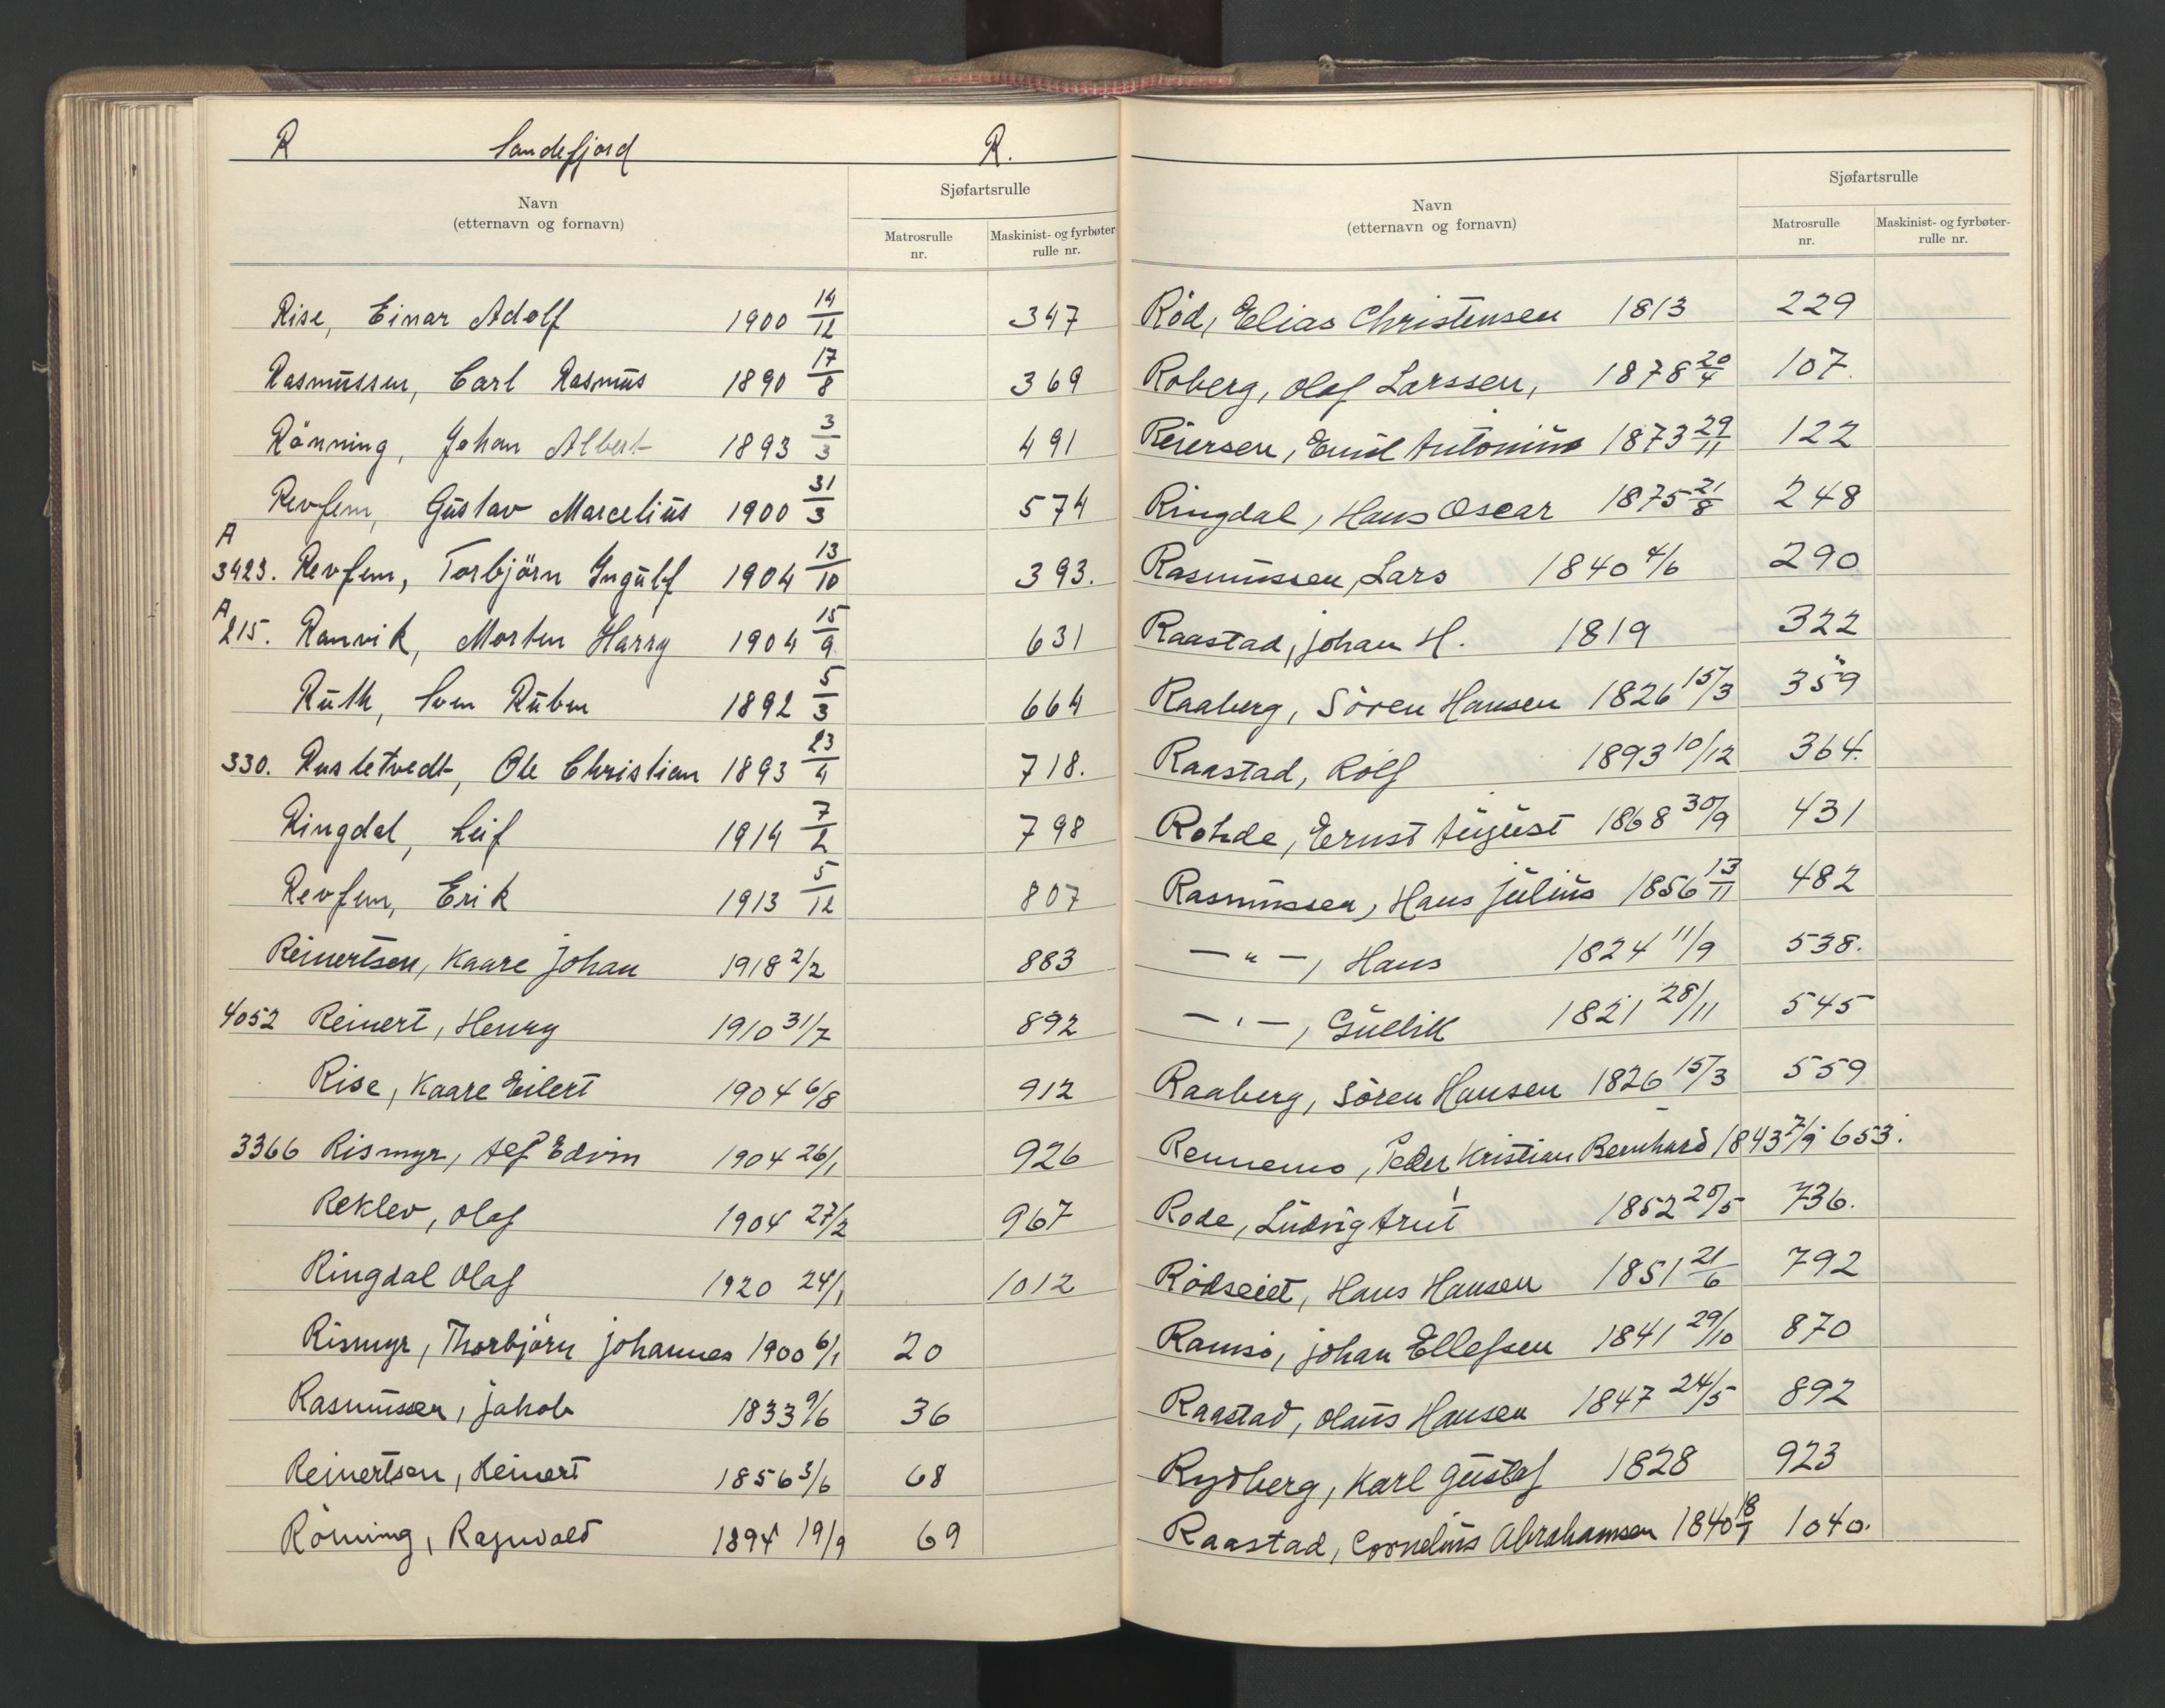 R Sandefjord R.
Navn
(etternavn og fornavn)
Sjøfartsrulle
Matrosrulle nr.
Maskinist- og fyrbøter-rulle nr.
Rise, Einar Adolf 1900 14/12 347
Rasmussen, Carl Rasmus 1890 17/8 369
Rönning, Johan Albert 1893 3/3 491
Revfem, Gustav Marcelius 1900 31/3 574
A 3423. Revfem, Torbjörn Ingulf 1904 13/10 393.
A 215. Ranvik, Morten Harry 1904 15/9 631
Ruth, Sven Ruben 1892 5/3 664
330. Rustetvedt, Ole Christian 1893 23/4 718.
Ringdal, Leif 1914 7/2 798
Revfem, Erik 1913 5/12 807
Reinertsen, Kaare Johan 1918 2/2 883
4052 Reinert, Henry 1910 31/7 892
Rise, Kaare Eilert 1904 6/8 912
3366 Rismyr, Alf Edvin 1904 26/1 926
Reklev, Olaf 1904 27/2 967
Ringdal Olaf 1920 24/1 1012
Rismyr, Thorbjörn Johannes 1900 6/1 20
Rasmussen, Jakob 1833 9/6 36
Reinertsen, Reinert 1856 3/6 68
Rönning, Ragnvald 1894 19/9 69
Navn
(etternavn og fornavn)
Sjøfartsrulle
Matrosrulle nr.
Maskinist- og fyrbøter-rulle nr.
Röd, Elias Christensen 1813 229
Roberg, Olaf Larssen, 1878 20/4 107.
Reiersen, Emil Antonius 1873 29/11 122
Ringdal, Hans Oscar 1875 21/8 248
Rasmussen, Lars 1840 4/6 290
Raastad, Johan H. 1819 322
Raaberg, Sören Hansen 1826 15/3 359
Raastad, Rolf 1893 10/12 364.
Rohde, Ernst August 1868 30/9 431
Rasmussen, Hans Julius 1856 13/11 482
— " —, Hans 1824 11/9 538.
— " —, Gullik 1821 28/11 545
Raaberg, Sören Hansen 1826 15/3 559
Rennemo, Peder Kristian Bernhard 1843 7/9 653.
Rode, Ludvig Arnt 1852 20/5 736.
Rödseiet, Hans Hansen 1851 21/6 792
Ramsö, Johan Ellefsen 1841 29/10 870
Raastad, Olaus Hansen 1847 24/5 892
Rydberg, Karl Gustaf 1828 923
Raastad, Cornelius Abrahamsen 1840 18/1 1040.